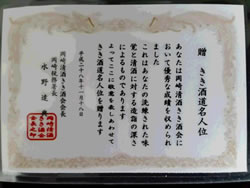 贈 きき酒道名人位
あなたは岡崎清酒きき酒会に
おいて優秀な成績を収められ
ました
これはあなたの洗練された味
覚と清酒に対する造詣の深さ
によるものであります
よってここに敬意を表しあわせて
きき酒道名人位を贈ります
平成二十八年十一月十八日
岡崎清酒きき酒会会長
岡崎税務署長
水野達